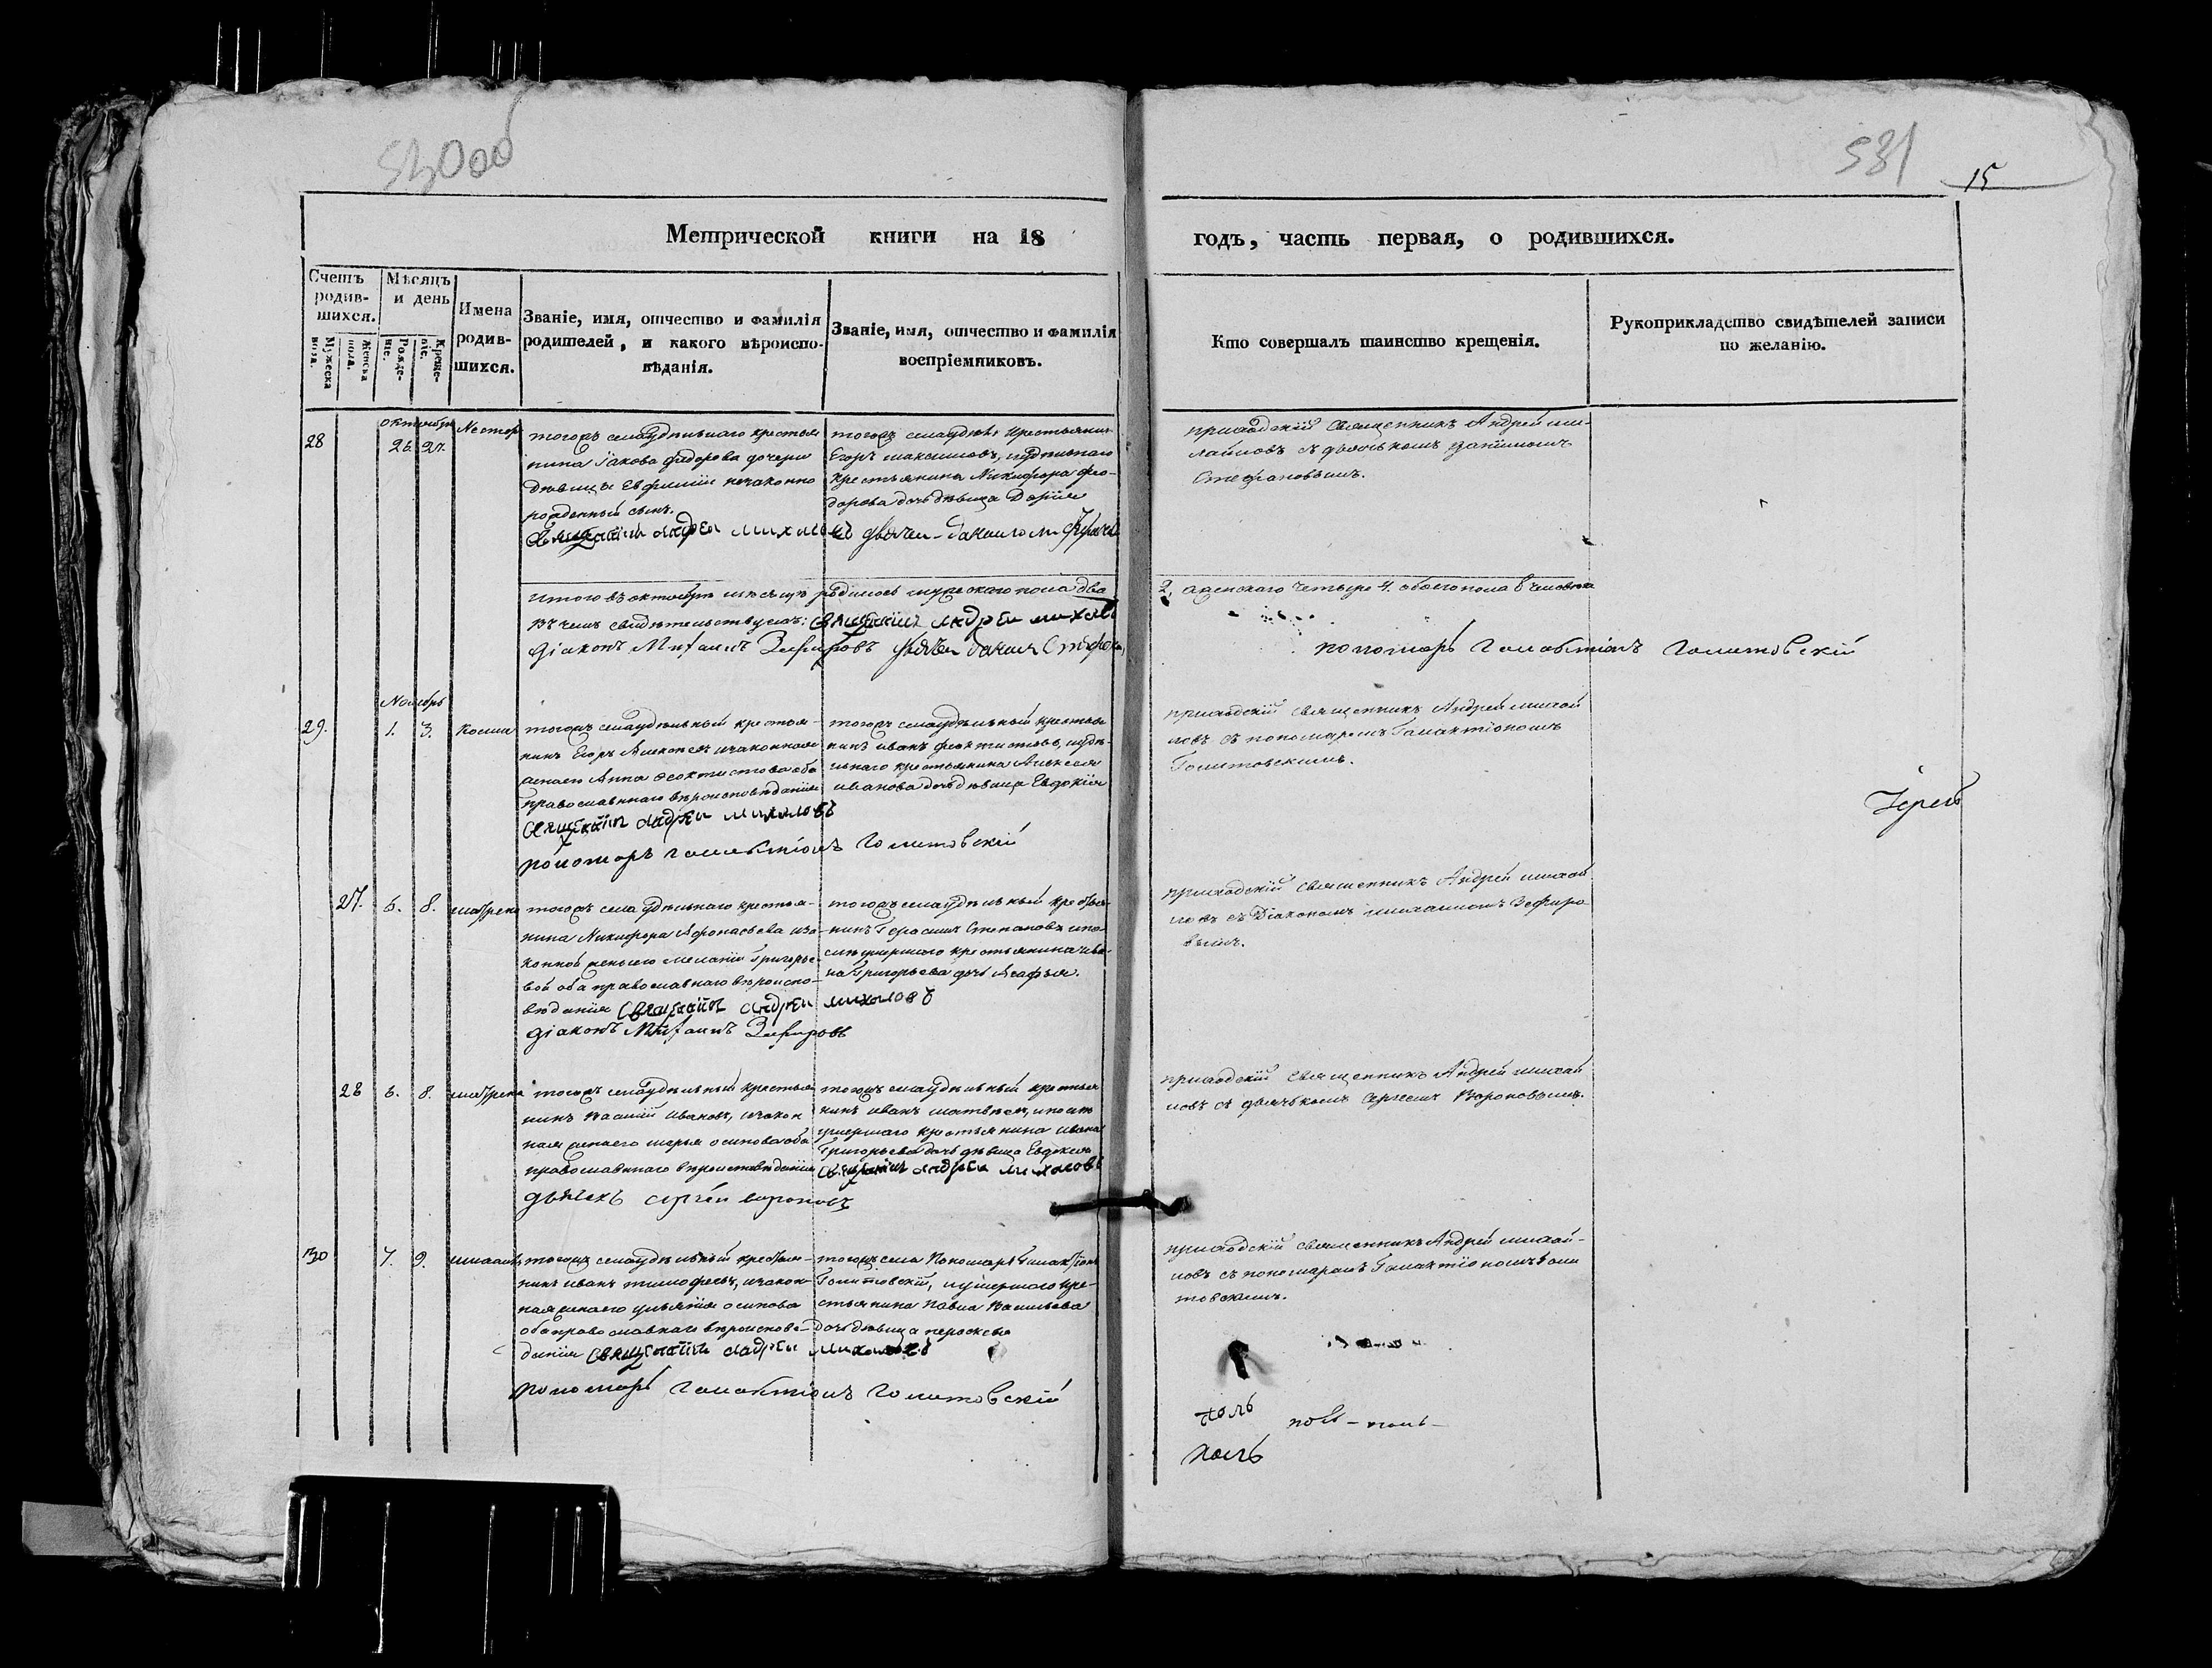 530об
531
15
Метрической книги на 18
годъ, часть первая, о родившихся.
Счетъ родив-
шихся.
Мужеска пола.
Женска пола.
Мѣсяцъ и день
Рожде-
ніе.
Креще-
ніе.
Имена
родив-
шихся.
Званіе, имя, отчество и фамилія
родителей, и какого вѣроиспо-
вѣданія.
Званіе, имя, отчество и фамилія
воспріемниковъ.
Кто совершалъ таинство крещенія.
Рукоприкладство свидѣтелей записи
по желанію.
октября
28
26. 27.
Несторъ
тогожъ села удѣльнаго крестья
нина Іакова федорова дочери
дѣвицы Евфиміи незаконно
рожденный сынъ.
тогожъ села удѣлъ: крестьянин
Егоръ максимовъ, и удѣльнаго
крестьянина Никифора фео-
дорова дочь дѣвица Дарія
приходскій священникъ Андрей ми-
хайловъ съ дьячькомъ данииломъ
Стефановымъ.
итого въ октябрѣ мѣсяцѣ родилось мужескаго пола два
2, женскаго четыре 4. обоего пола 6 человекъ
въ чемъ свидѣтельствуемъ: священникъ андреи михаловъ
діаконъ Михаилъ Зефировъ
пономарь Галактіонъ Голитовскій
Ноябрь
29.
1. 3.
Косма
тогожъ села удѣльный крестья-
нинъ Егоръ Алексѣевъ и законная
жена его Анна Феоктистова оба
православнаго вѣроисповѣданія
священникъ андреи михаловъ
пономарь галактіонъ Голитовскій
тогожъ села удѣльный крестья
нинъ иванъ феоктистовъ, и удѣ-
льнаго крестьянина Алексея
иванова дочь дѣвица Евдокія
приходскій священникъ Андрей михай
ловъ съ пономаремъ Галактіономъ
Голитовскимъ.
Іерей
27.
6. 8.
матрена
тогожъ села удѣльнаго крестья-
нина Никифора Афонасьева и за-
конной жены его Меланіи Григорье-
вой оба православнаго вѣроиспо-
вѣданія священникъ андреи михаловъ
діаконъ Михаилъ Зефировъ
тогожъ села удѣльный крестья-
нинъ Герасимъ Степановъ и по-
слѣ умершаго крестьянина ива-
на Григорьева дочь Агафья.
приходскій священникъ Андрей михай
ловъ съ Діакономъ михаиломъ Зефиро-
вымъ.
28
6. 8.
матрена
тогожъ села удѣльный крестья
нинъ Василій Ивановъ, и закон
ная жена его марья осипова оба
православнаго вѣроисповѣданія
дьячекъ сергѣи вороновъ
тогожъ села удѣльный крестья
нинъ иванъ матвѣевъ, и послѣ
умершаго крестьянина ивана
Григорьева дочь дѣвица Евдокея
священникъ андреи михаловъ
приходскій священникъ Андрей михай
ловъ съ дьячькомъ Сергеемъ Вороновымъ.
30
7. 9.
михаилъ
тогожъ села удѣльный крестья-
нинъ иванъ тимофеевъ, и закон-
ная жена его ульянія осипова
оба православнаго вѣроисповѣ-
данія священникъ андреи михаловъ
пономарь галактіонъ Голитовскій
тогожъ села Пономарь Галактіонъ
Голитовскій, и умершаго кре-
стьянина Павла Васильева
дочь дѣвица параскева
приходскій священникъ Андрей михай-
ловъ съ пономаремъ Галактіономъ Голи
товскимъ.